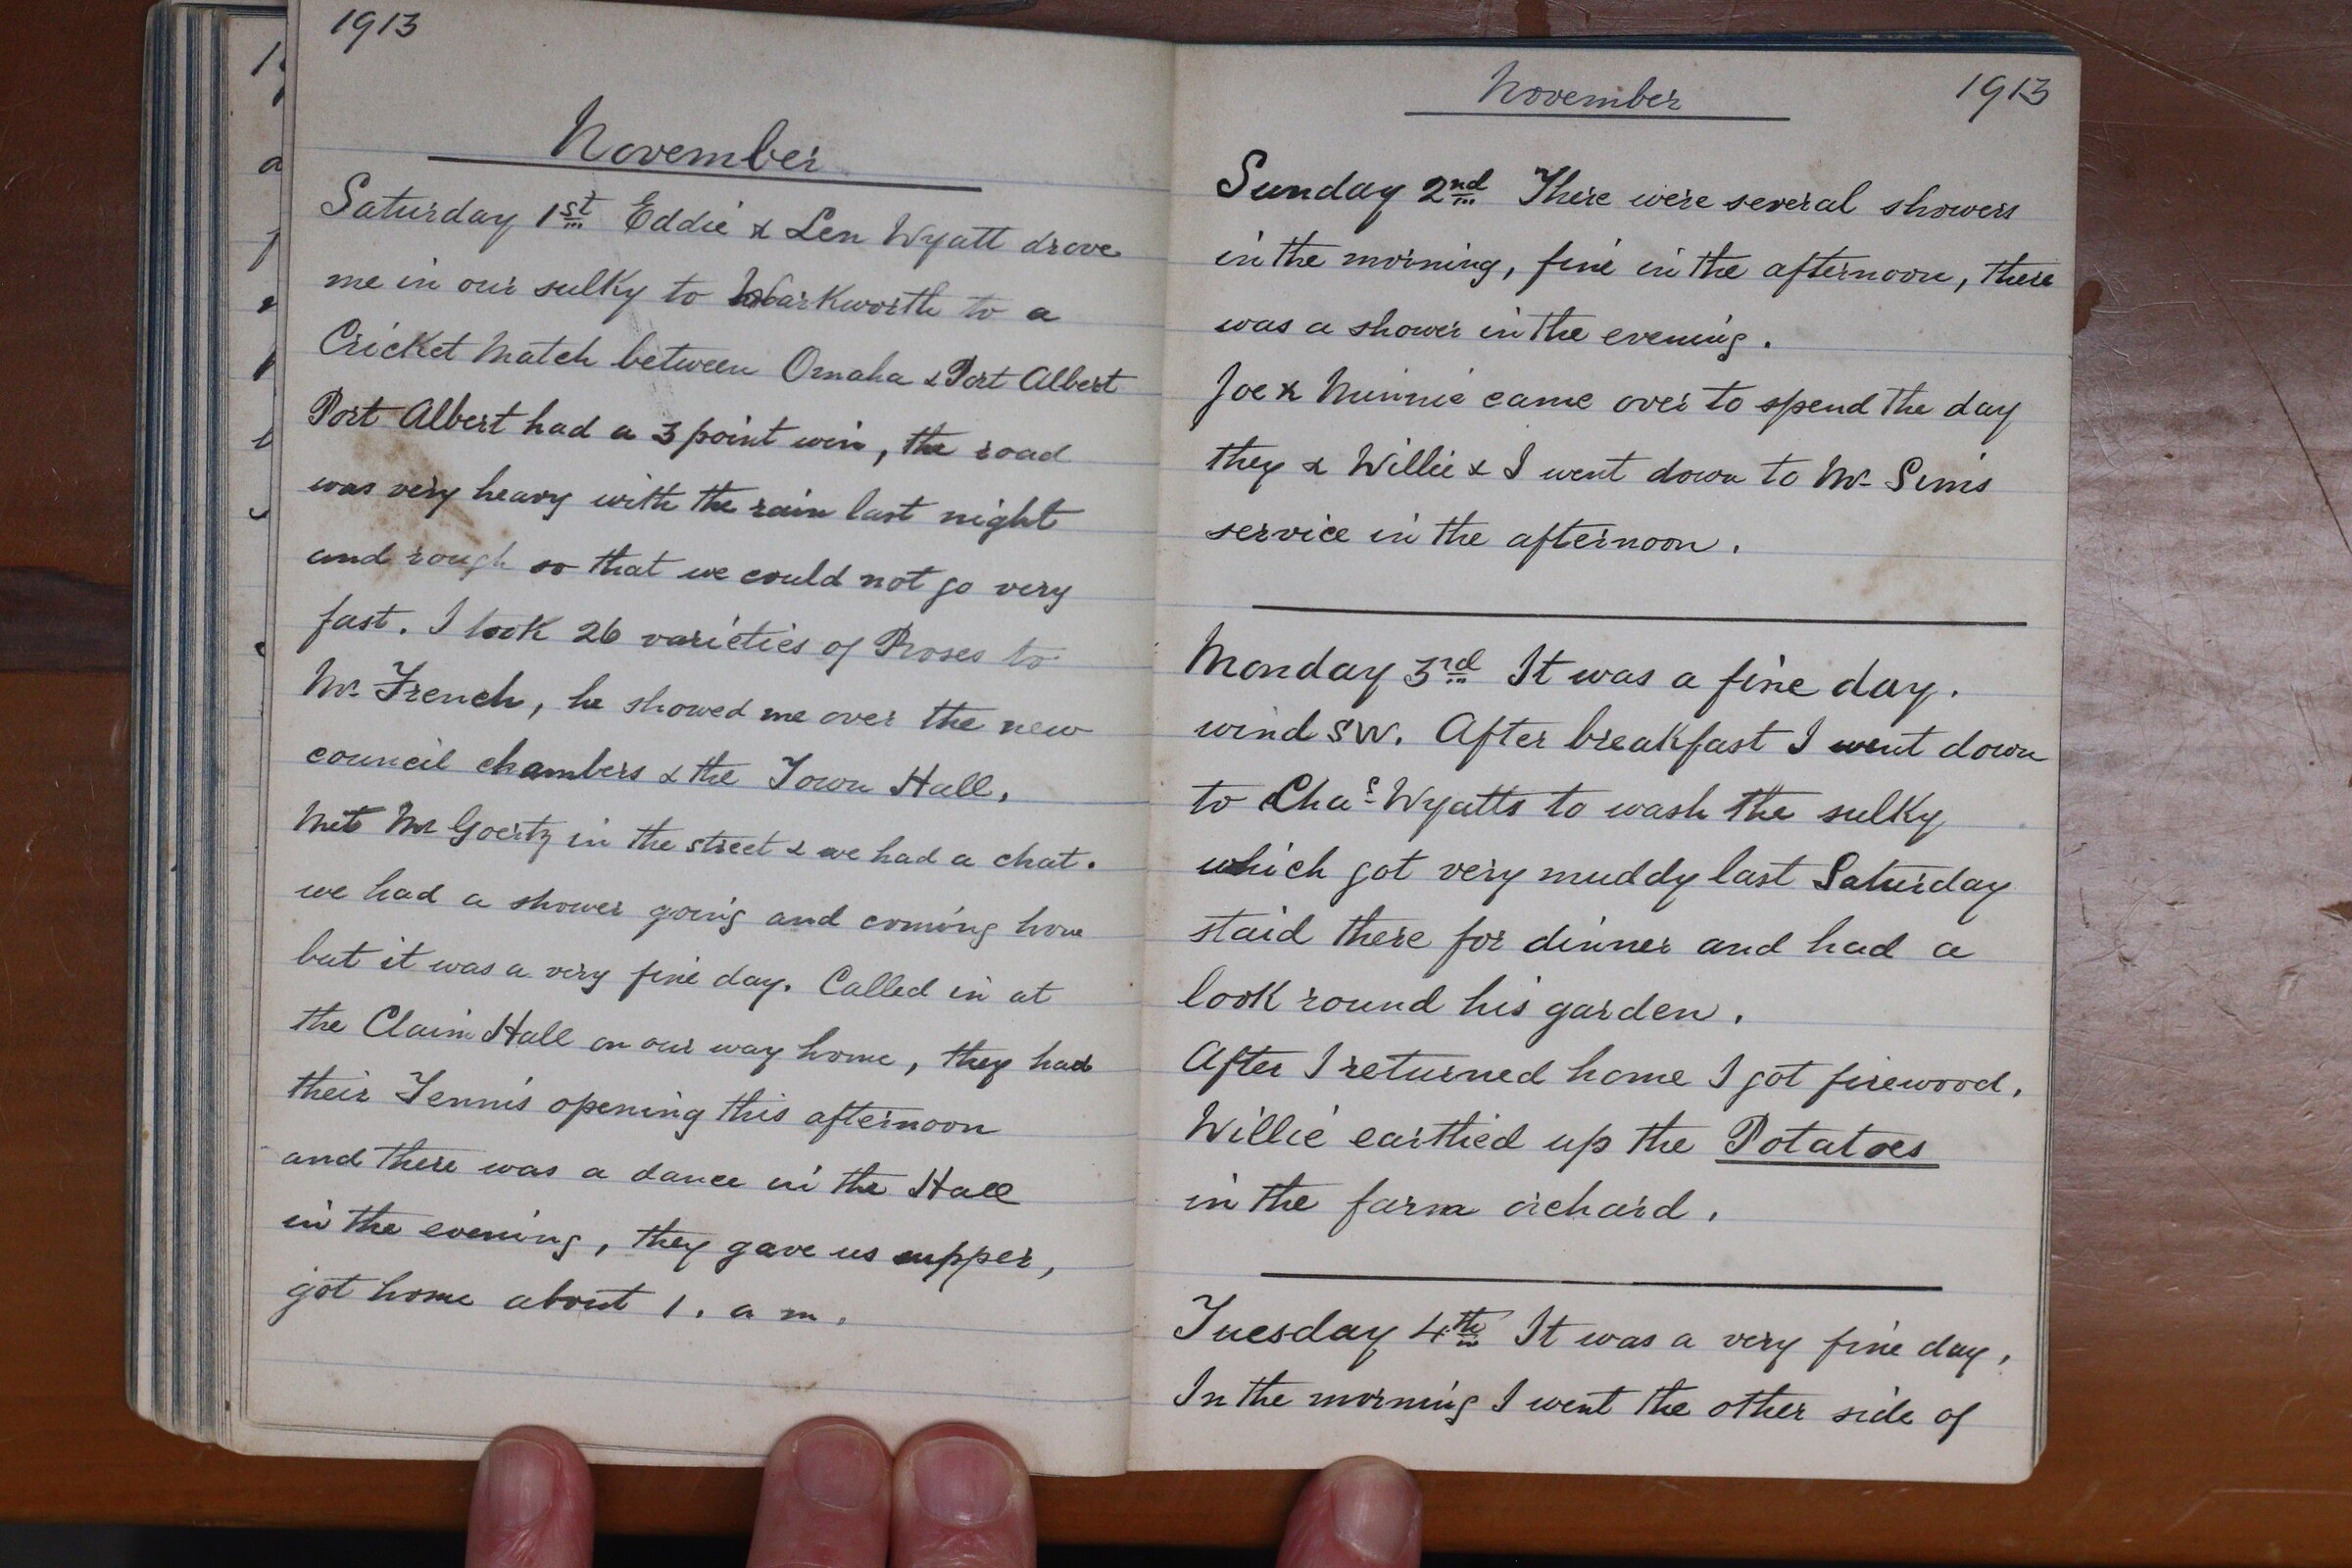 1913
November
Saturday 1st Eddie & Len Wyatt drove
me in our sulky to Warkworth to a
Cricket Match between Omaha & Port Albert
Port Albert had a 3 point win, the road
was very heavy with the rain last night
and rough so that we could not go very
fast. I took 26 varieties of Roses to
Mr. French, he showed me over the new
council chambers & the Town Hall.
Met Mr Goertz in the street & we had a chat.
we had a shower going and coming home
but it was a very fine day. Called in at
the Claim Hall on our way home, they had
their Tennis opening this afternoon
and there was a dance in the Hall
in the evening, they gave us supper,
got home about 1. a m.
November 1913
Sunday 2nd There were several showers
in the morning, fine in the afternoon, there
was a shower in the evening.
Joe & Minnie came over to spend the day
they & Willie & I went down to Mr Sims
service in the afternoon.
Monday 3rd It was a fine day.
wind SW. After breakfast I went down
to Chas Wyatts to wash the sulky
which got very muddy last Saturday
staid there for dinner and had a
look round his garden.
After I returned home I got firewood.
Willie earthed up the Potatoes
in the farm orchard.
Tuesday 4th It was a very fine day,
In the morning I went the other side of